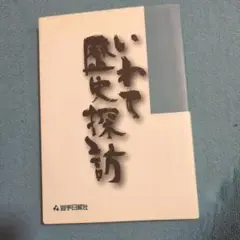 いわて
歴史探訪
岩手日報社